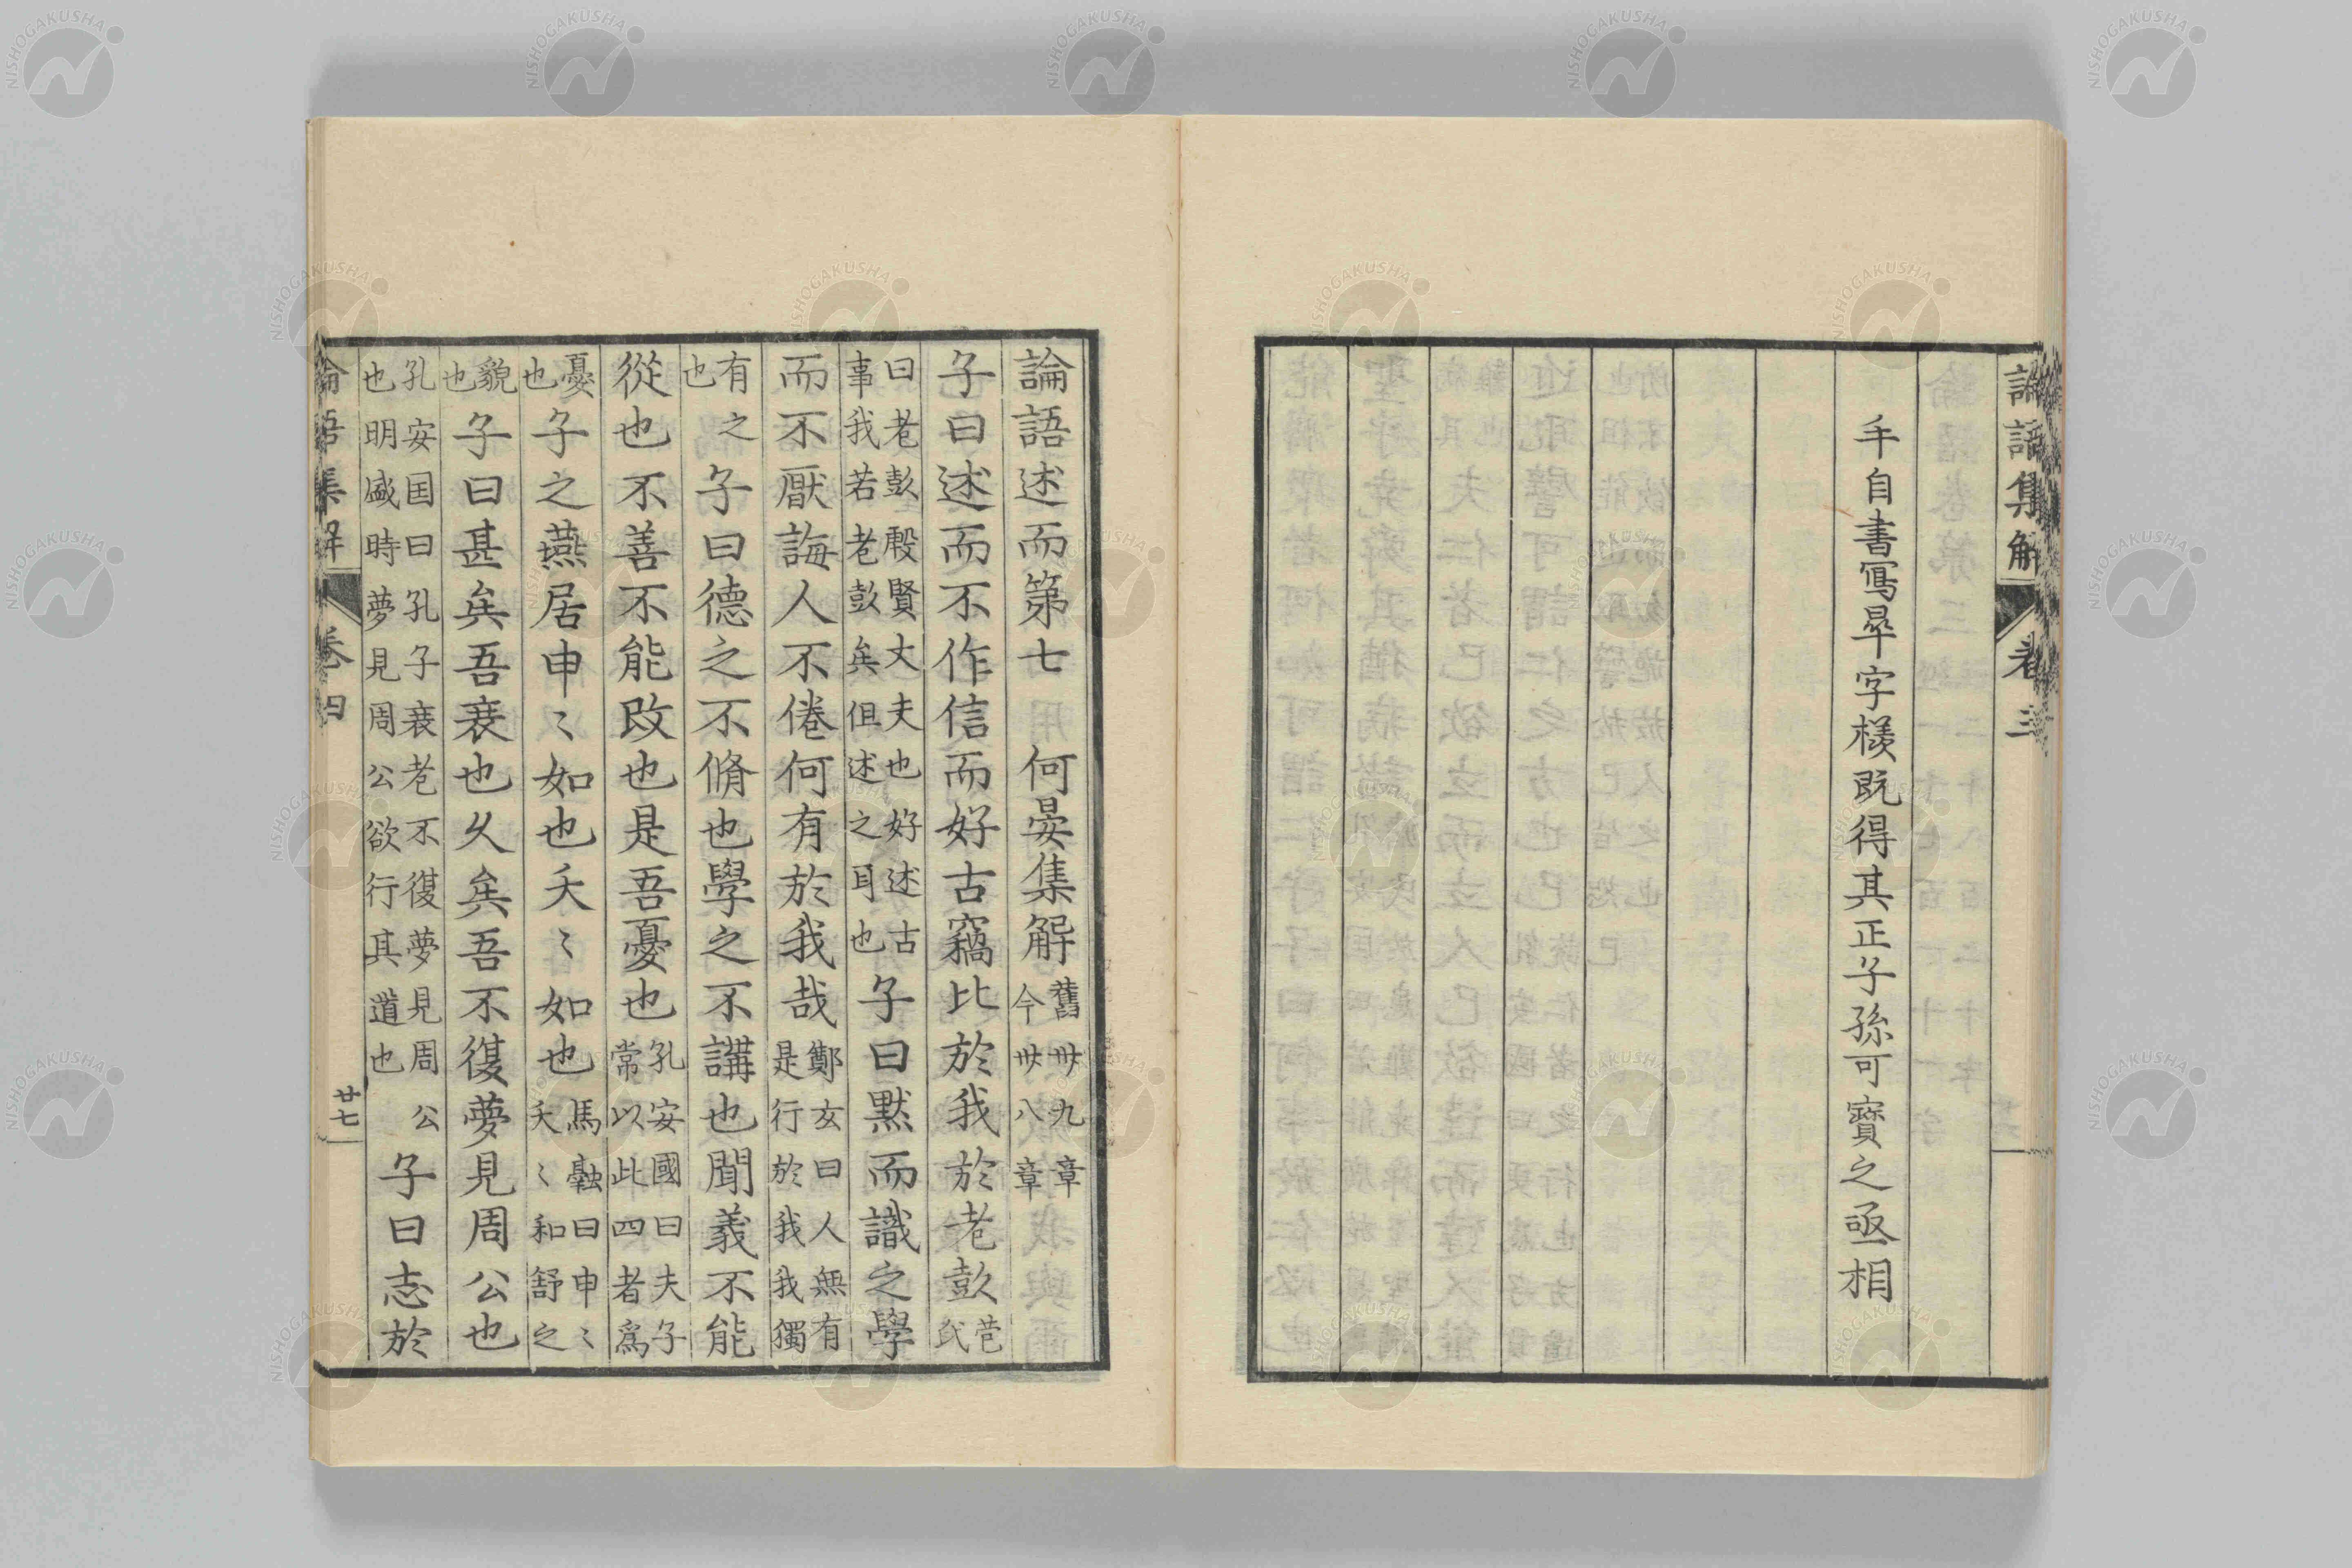 論語集解 卷三
手自書寫畢字樣既得其正子孫可寶之亟相
論語述而第七 何晏集解 舊卅九章 今卅八章
子曰述而不作信而好古竊比於我於老彭 苞氏
曰老彭殷賢大夫也好述古事我若老彭矣但述之耳也 子曰默而識之學
而不厭誨人不倦何有於我哉 鄭玄曰人無有是行於我我獨
有之也 子曰德之不脩也學之不講也聞義不能
從也不善不能改也是吾憂也 孔安國曰夫子常以此四者爲
憂也 子之燕居申〻如也夭〻如也 馬融曰申〻夭〻和舒之
貌也 子曰甚矣吾衰也久矣吾不復夢見周公也
孔安国曰孔子衰老不復夢見周公也明盛時夢見周公欲行其道也 子曰志於
論語集解 卷四 廿七
NISHOGAKUSHA